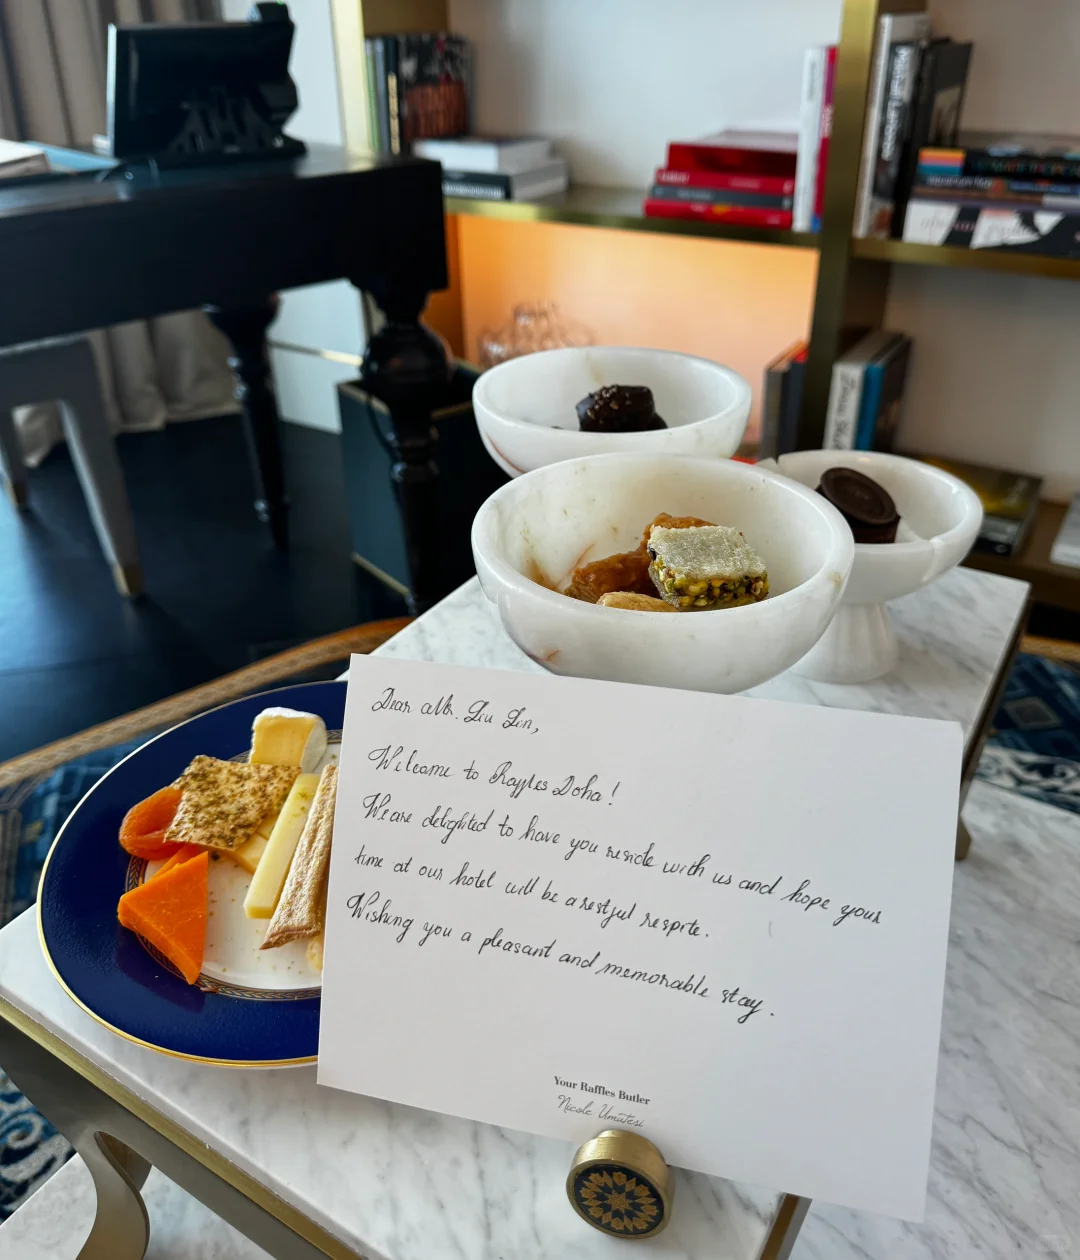 Dear Mr. Liu Lin,
Welcome to Raffles Doha!
We are delighted to have you reside with us and hope your
time at our hotel will be a restful respite.
Wishing you a pleasant and memorable stay.
Your Raffles Butler
Nicole Umutesi